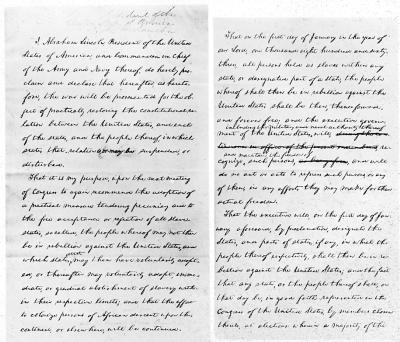 I, Abraham Lincoln, President of the United
States of America, and Commander-in-Chief
of the Army and Navy thereof, do hereby pro-
claim and declare that hereafter, as hereto-
fore, the war will be prosecuted for the ob-
ject of practically restoring the constitutional re-
lation between the United States, and each
of the states, and the people thereof, in which
states that relation is, or may be suspended, or
disturbed.
That it is my purpose, upon the next meeting
of Congress to again recommend the adoption of
a practical measure tendering pecuniary aid to
the free acceptance or rejection of all slave-
states, so called, the people whereof may not then
be in rebellion against the United States, and
which states, may then have voluntarily adopt-
ed, or thereafter may voluntarily adopt, imme-
diate, or gradual abolishment of slavery within
their respective limits; and that the effort
to colonize persons of African descent upon this
continent, or elsewhere, will be continued.
That on the first day of January in the year of
our Lord, one thousand eight hundred and sixty-
three, all persons held as slaves within any
state, or designated part of a state, the people
whereof shall then be in rebellion against the
United States shall be then, thenceforward,
and forever free; and the executive govern-
including the military and naval authority thereof
ment of the United States, will
re-
and maintain the freedom of
cognize such persons, and will
do no act or acts to repress such persons, or any
of them, in any efforts they may make for their
actual freedom.
That the executive will, on the first day of Janu-
ary aforesaid, by proclamation, designate the
States, and parts of states, if any, in which the
people thereof respectively, shall then be in re-
bellion against the United States; and the fact
that any state, or the people thereof shall, on
that day be, in good faith represented in the
Congress of the United States, by members chosen
thereto, at elections wherein a majority of the